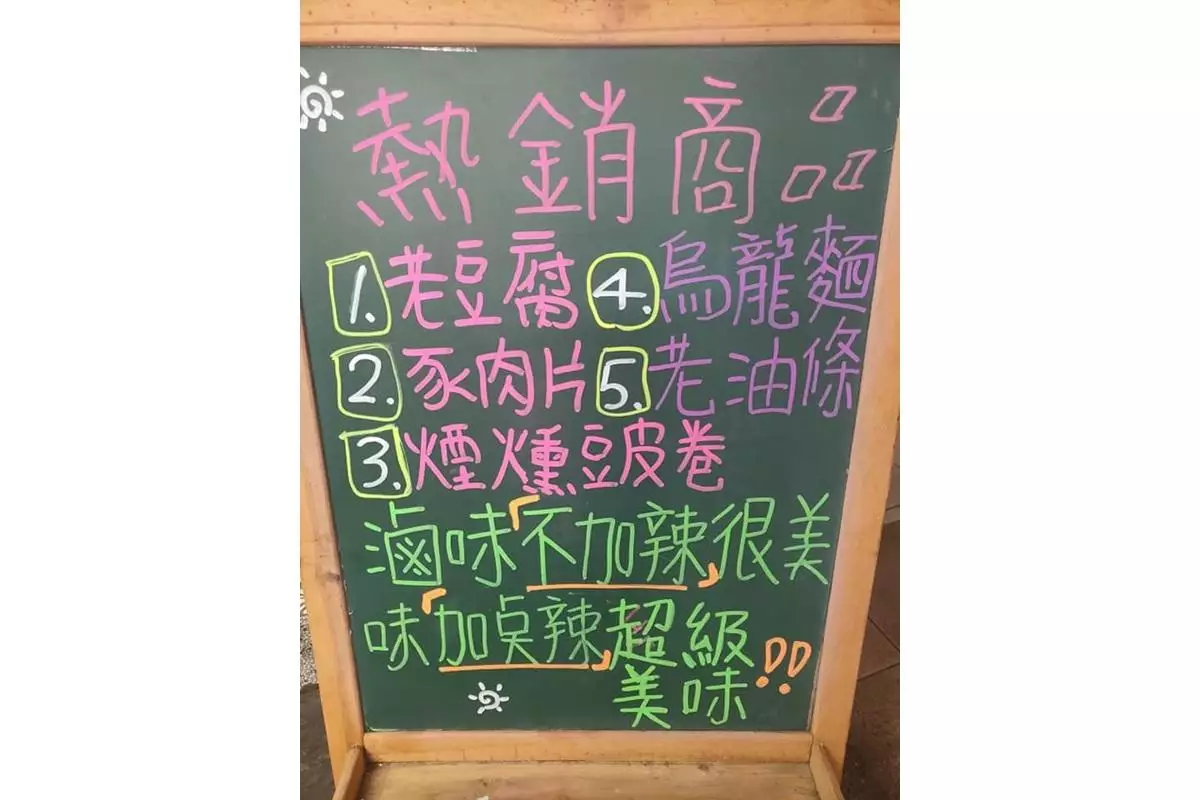 熱銷商品
1. 老豆腐
4. 烏龍麵
2. 豖肉片
5. 老油條
3. 煙燻豆皮卷
滷味「不加辣」很美
味「加点辣」超級
美味!!